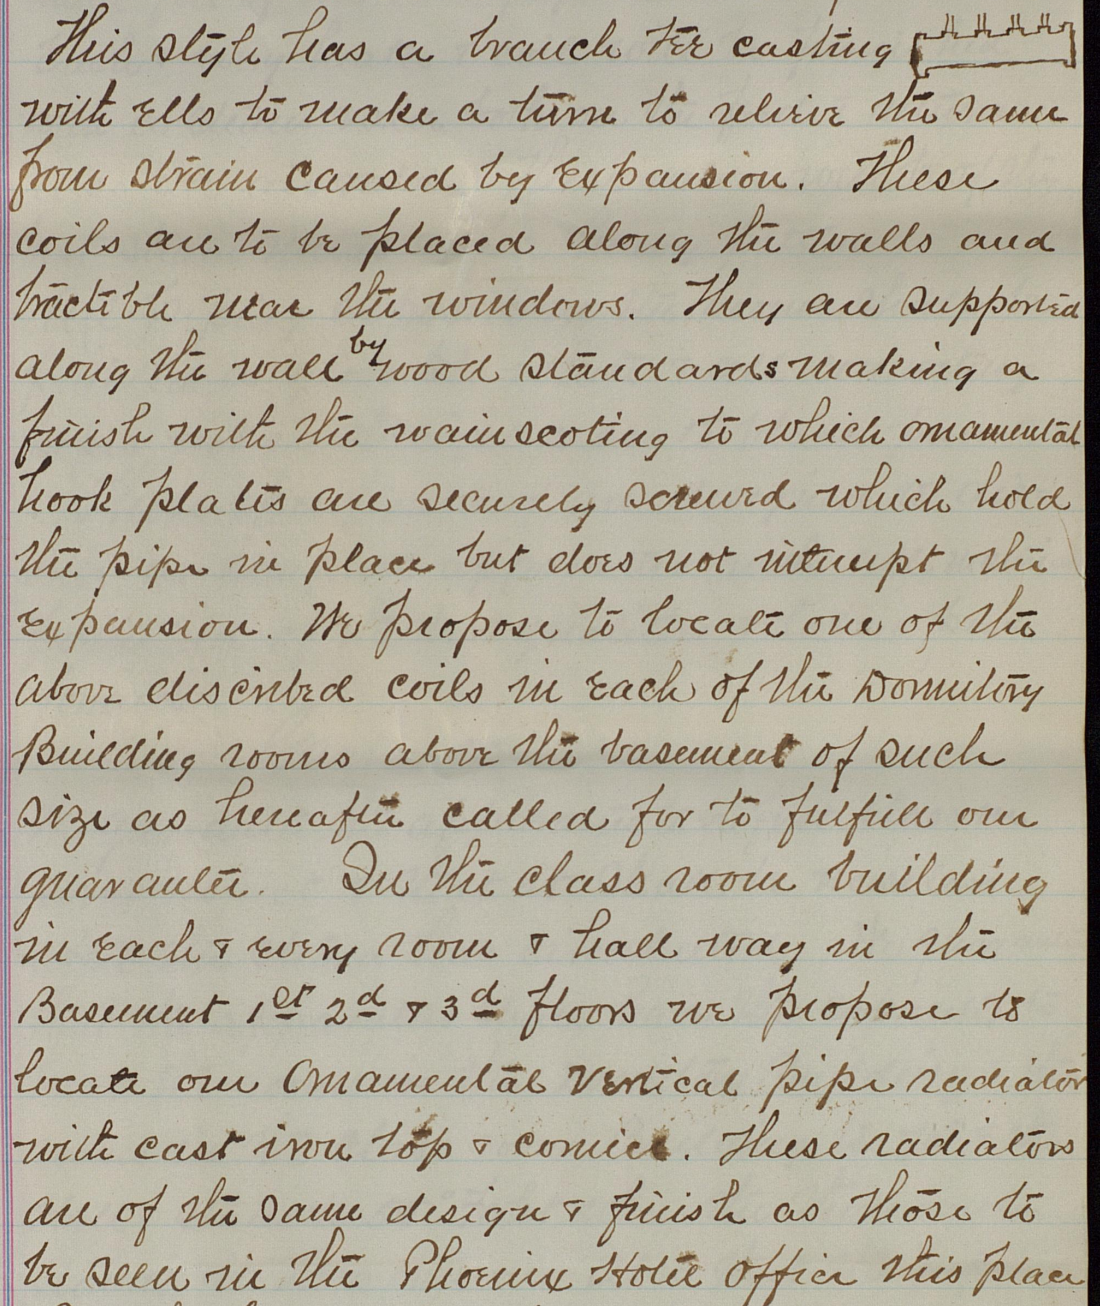 This style has a branch tee casting
with Ells to make a turn to relieve the same
from strain caused by Expansion. These
coils are to be placed along the walls and
near the windows. They are supported
along the wall by wood standards making a
finish with the wainscoting to which ornamental
hook plates are securely screwed which hold
the pipe in place but does not interrupt the
Expansion. We propose to locate one of the
above discribed coils in Each of the Dormitory
Building rooms above the basement of such
size as hereafter called for to fulfill our
guarantee. In the class room building
in Each & Every room & hall way in the
Basement 1st 2d & 3d floors we propose to
locate our Ornamental Vertical pipe radiator
with cast iron top & cornice. These radiators
are of the same design & finish as those to
be seen in the Phoenix Hotel Office this place